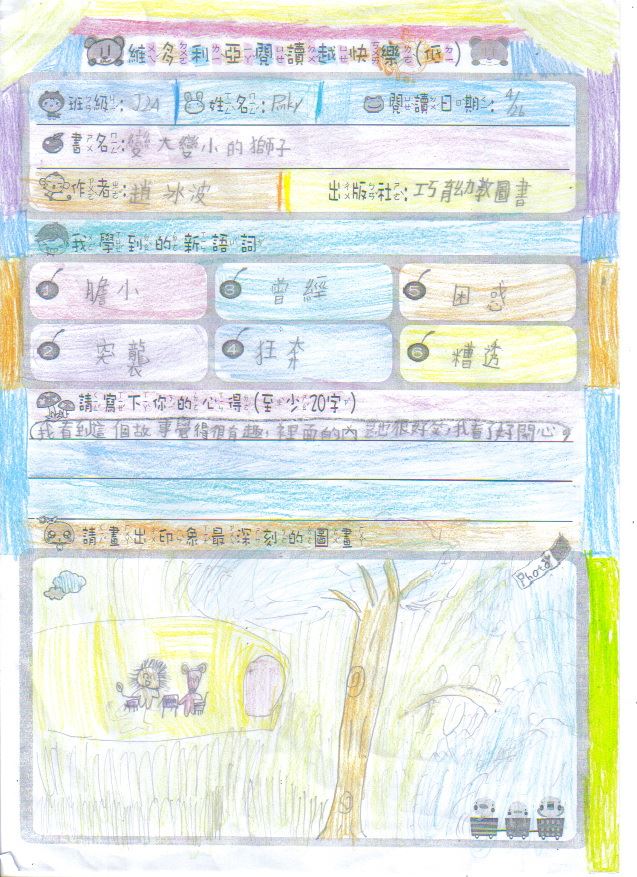 維多利亞閱讀越快樂(低)
班級:J2A 姓名:Pinky 閱讀日期:4/26
書名:變大變小的獅子
作者:趙冰波 出版社:巧育幼教圖書
我學到的新語詞
1 膽小 3 曾經 5 困惑
2 突襲 4 狂奔 6 糟透
請寫下你的心得(至少20字)
我看到這個故事覺得很有趣,裡面的內 也很好笑,我看了好開心。
請畫出印象最深刻的圖畫
Photo